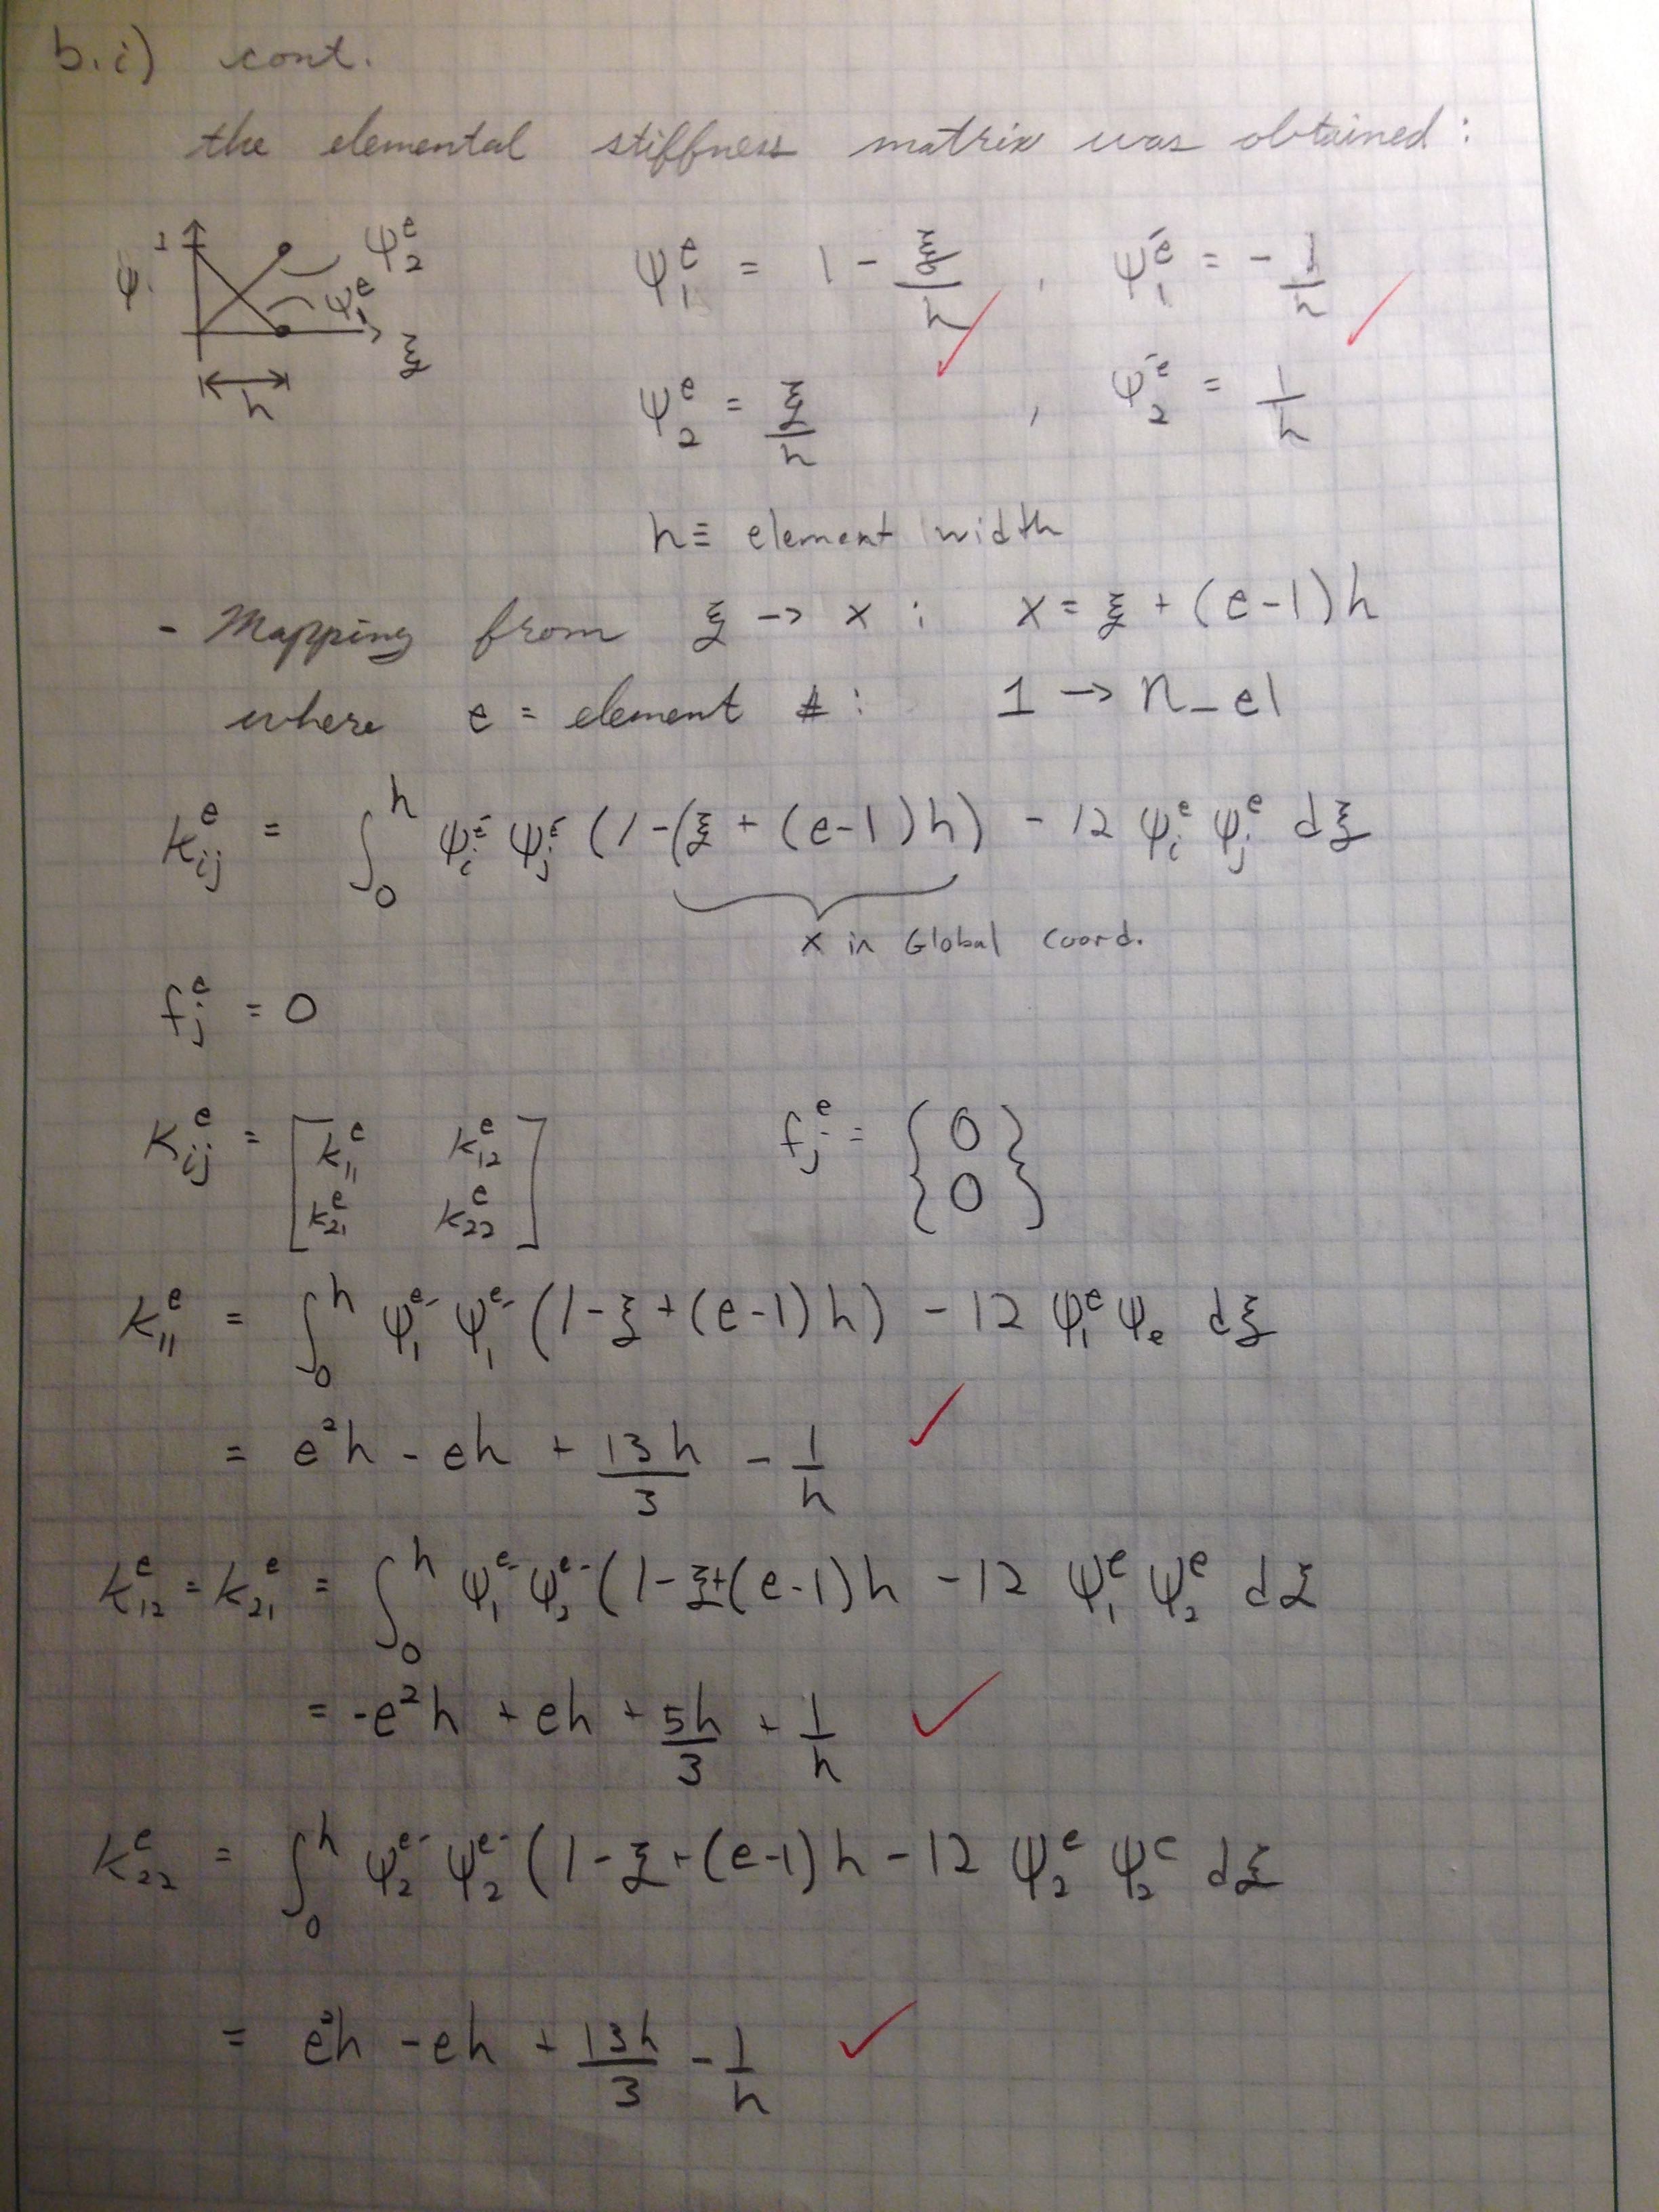 b.i) cont.
the elemental stiffness matrix was obtained:
1 ψ₂ᵉ
ψ. ψ₁ᵉ
ξ
h
ψ₁ᵉ = 1 - ξ/h , ψ₁ᵉ′ = - 1/h
ψ₂ᵉ = ξ/h , ψ₂ᵉ′ = 1/h
h ≡ element width
- Mapping from ξ → x : x = ξ + (e-1)h
where e = element # : 1 → n_el
kᵢⱼᵉ = ∫₀ʰ ψᵢᵉ′ ψⱼᵉ′ (1-(ξ + (e-1)h) - 12 ψᵢᵉ ψⱼᵉ dξ
x in Global Coord.
fⱼᵉ = 0
Kᵢⱼᵉ = [k₁₁ᵉ k₁₂ᵉ
k₂₁ᵉ k₂₂ᵉ]
fⱼᵉ = {0
0}
K₁₁ᵉ = ∫₀ʰ ψ₁ᵉ′ ψ₁ᵉ′ (1-ξ+(e-1)h) - 12 ψ₁ᵉ ψₑ dξ
= e²h - eh + 13h/3 - 1/h
k₁₂ᵉ = k₂₁ᵉ = ∫₀ʰ ψ₁ᵉ′ ψ₂ᵉ′ (1-ξ+(e-1)h - 12 ψ₁ᵉ ψ₂ᵉ dξ
= -e²h + eh + 5h/3 + 1/h
K₂₂ᵉ = ∫₀ʰ ψ₂ᵉ′ ψ₂ᵉ′ (1-ξ+(e-1)h - 12 ψ₂ᵉ ψ₂ᵉ dξ
= e²h - eh + 13h/3 - 1/h